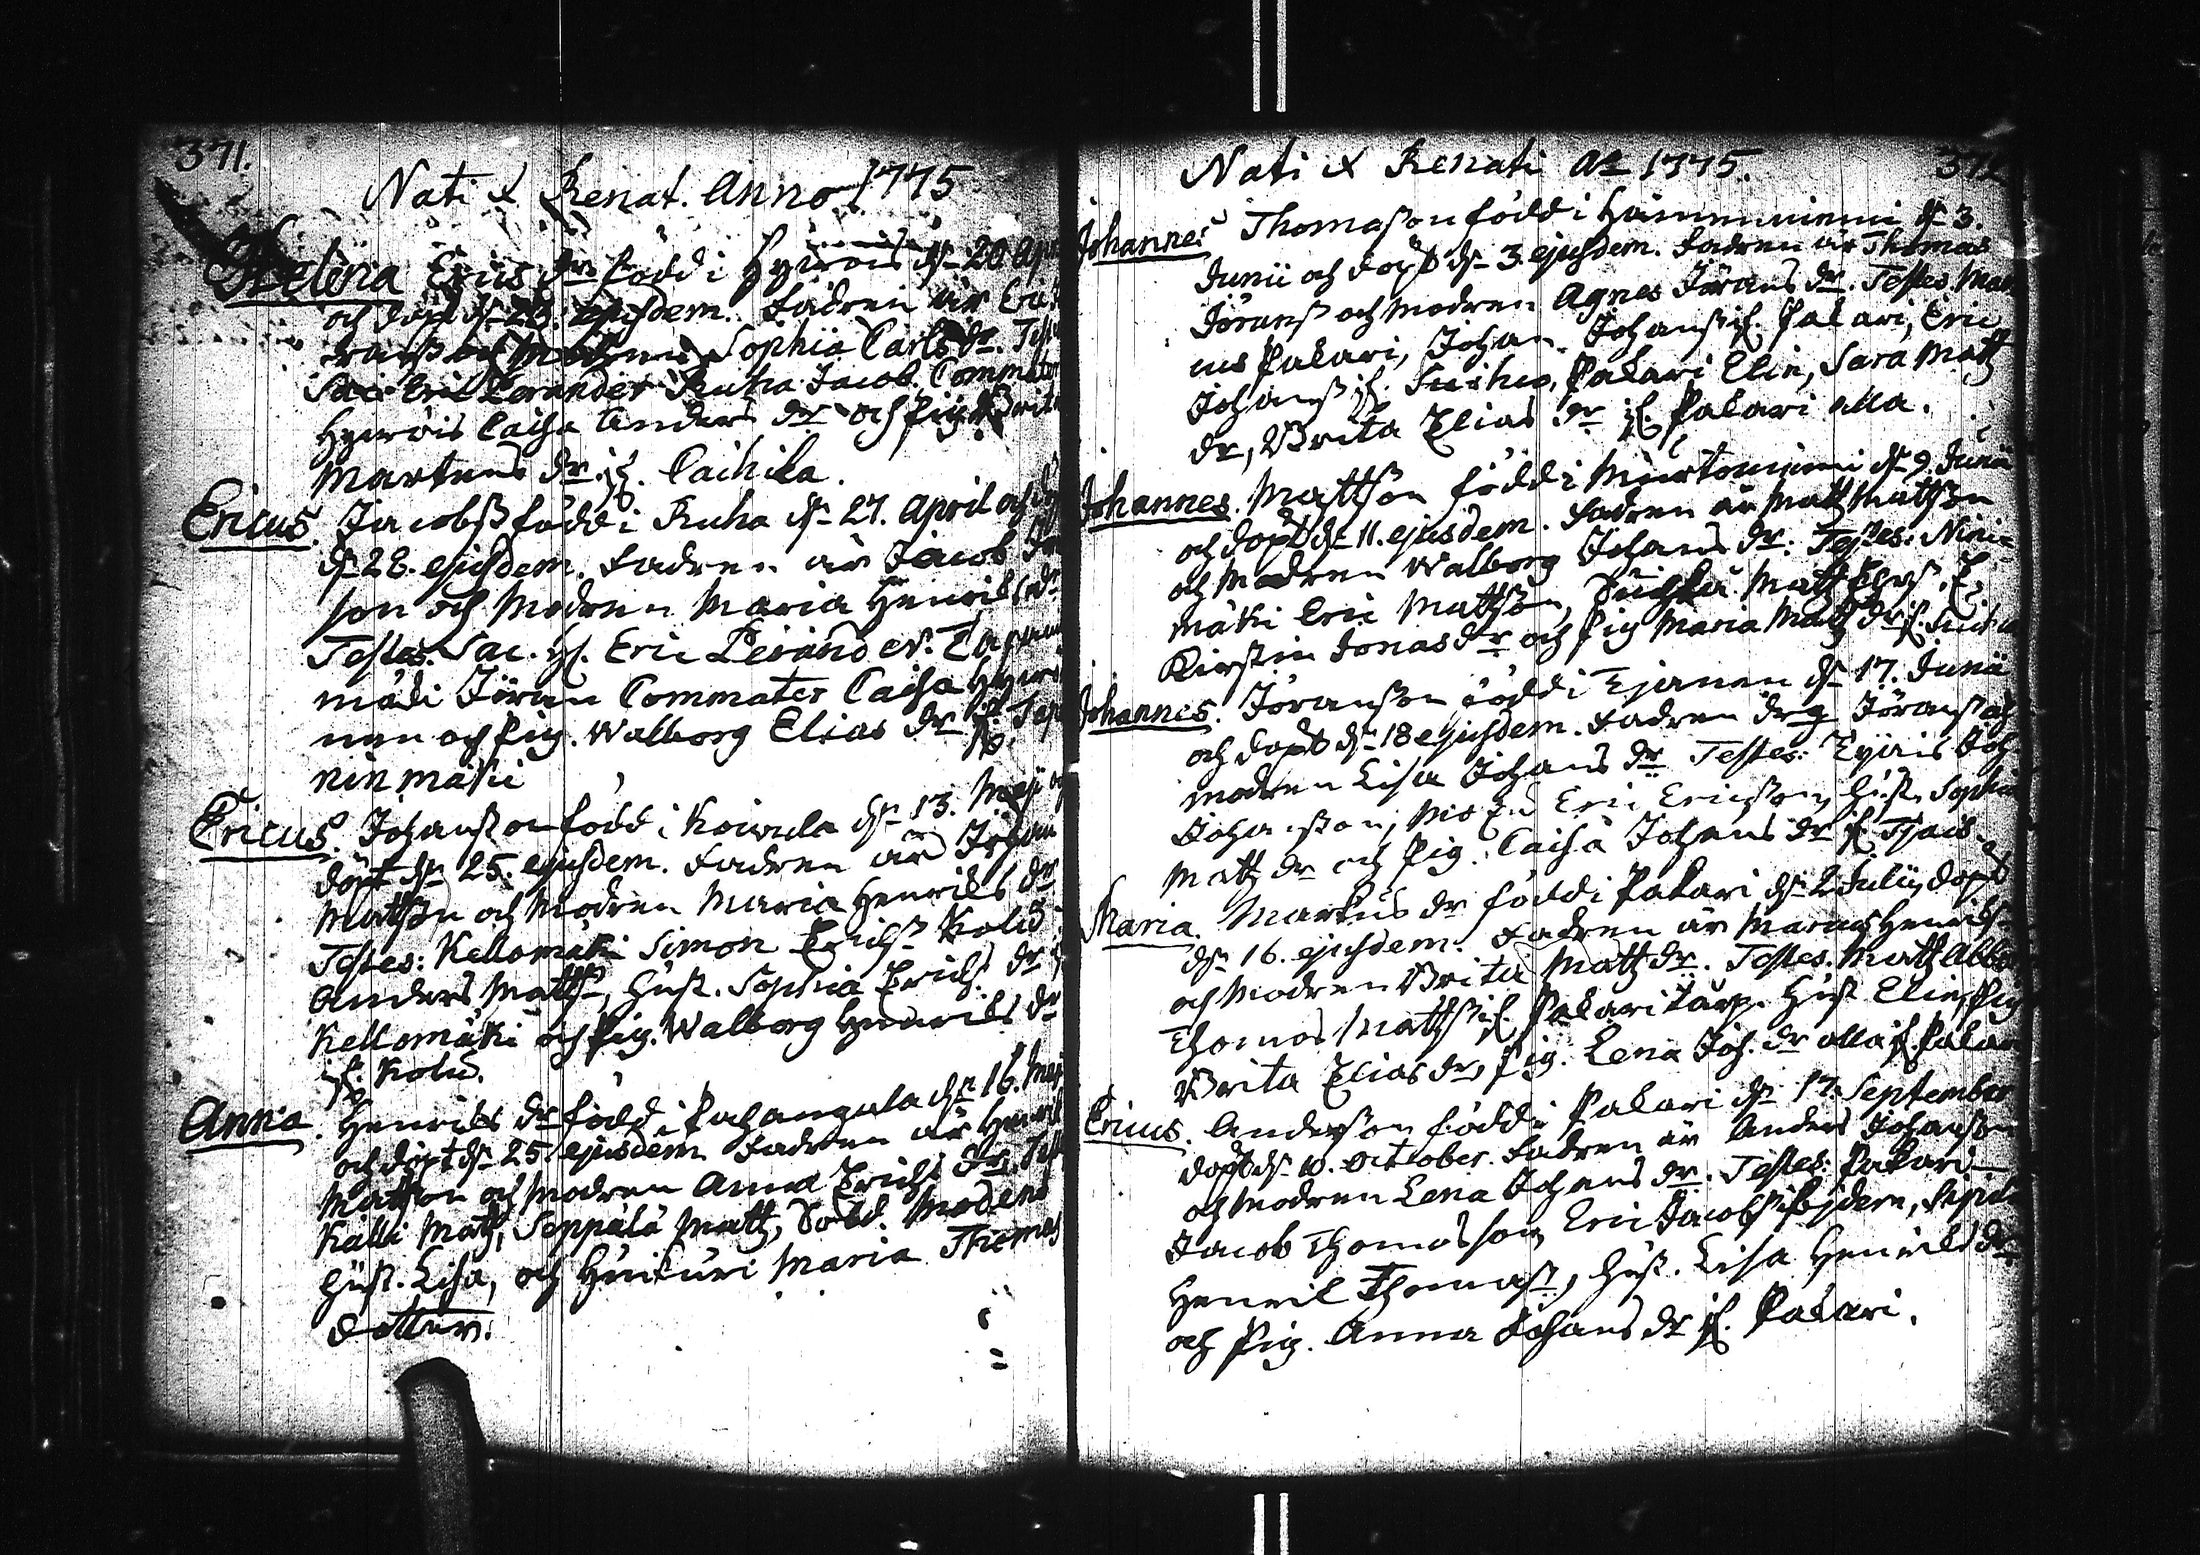 371.
Nati & Renat. Anno 1775
Helena Erics dr. född i Hyuröis d. 20 Apr
och döpt d. 23. ejusdem. Fadren är Eric
och Modren Sophia Carls dr. Test
Sac. Eric Lerander Ruha Jacob. Commater
Hyuröis Caisa Anders dr och Pig. Brita
Martens dr if. Caihila.
Ericus. Jacobss född i Ruha d. 27. April och
d. 28. ejusdem. Fadren är Jacob
son och Modren Maria Henrics dr
Testes. Sac. Eric Lerander.
mäki Jöran Commater Caisa
nen och Pig. Walborg Elias dr if.
ninmäki
Ericus. Johansson född i Koivula d. 13. Maji
döpt d. 25. ejusdem. Fadren är Johan
Matsson och Modren Maria Henrics dr
Testes: Kellomäki Simon Erichs Kolu
Anders Matts, Hust. Sophia Erichs dr
Kellomäki och Pig. Walborg Henrics dr
if. Kolu.
Anna. Henrics dr född i Pahangala d. 16. Maj
och döpt d. 25. ejusdem Fadren är Henric
Mattson och Modren Anna Erichs dr. Test
Kalli Matts, Seppälä Matts, Sold. Modens
Hust. Lisa, och Huikuri Maria Thomas
dotter.
Nati & Renati Ao 1775. 372
Johannes Thomasson född i Hämenniemi d. 3.
Junii och döpt d. 3 ejusdem. Fadren är Thomas
Jöranss och Modren Agnes Jörans dr. Testes Mar
cus Pakari, Johan Johanss if. Pakari, Eric
Johanss if. Pakari Elin, Sara Matts
dr, Brita Elias dr if. Pakari alla.
Johannes. Mattson född i Murtoniemi d. 9 Junii
och döpt d. 11. ejusdem. Fadren är Matts Mattson
och Modren Walborg Johans dr. Testes: Nini
mäki Eric Mattson, Matts
Kirstin Jonas dr och Pig Maria Matts dr if.
Johannes. Jöransson född i Ejanen d. 17. Junii
och döpt d. 18 ejusdem. Fadren Jöranss och
modren Lisa Johans dr Testes: Joh
Johansson, Eric Ericsson, Hust. Sophia
Matts dr och Pig. Caisa Johans dr if.
Maria. Markus dr född i Pakari d. 2 Julii, döpt
d. 16. ejusdem. Fadren är Marcus Henrics
och Modren Brita Matts dr. Testes. Matts
Thomas Matts if. Pakari Hust Elin, Pig
Brita Elias dr, Pig. Lena Joh. dr alla if. Pakari
Ericus. Andersson född i Pakari d. 17. September
döpt d. 10. October. Fadren är Anders Johansson
och Modren Lena Johans dr. Testes: Pakari
Jacob Thomasson, Eric Jacobss
Henric Thomass, Hust. Lisa Henrics dr
och Pig. Anna Johans dr if. Pakari.